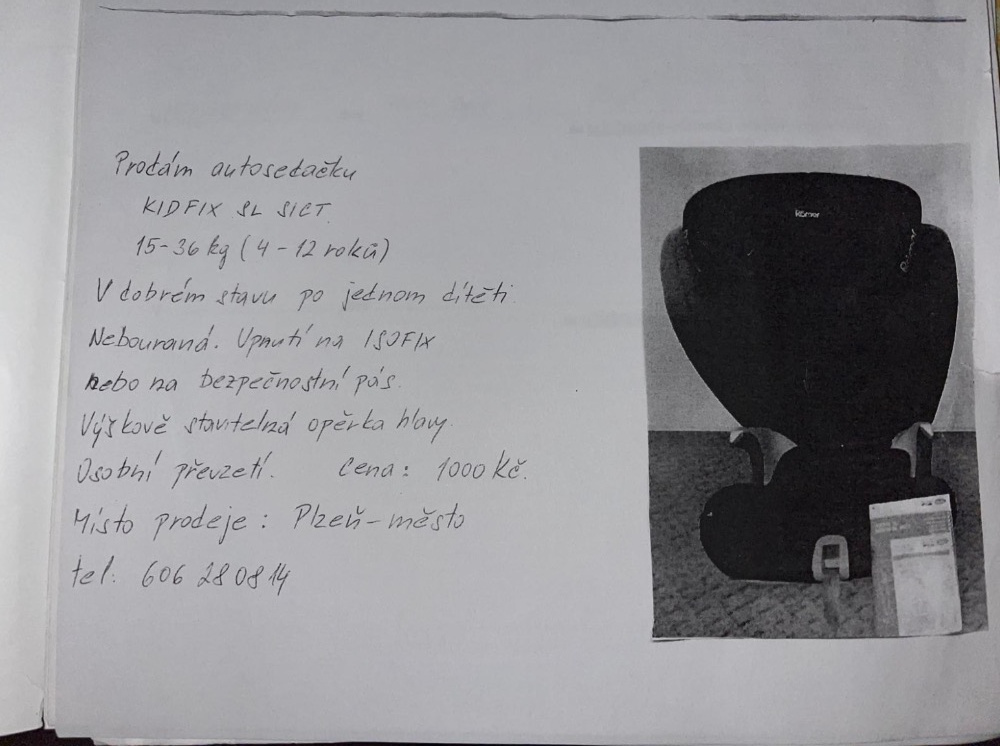 Prodám autosedačku
KIDFIX SL SICT
15-36 kg (4-12 roků)
V dobrém stavu po jednom dítěti.
Nebouraná. Upnutí na ISOFIX
nebo na bezpečnostní pás.
Výškově stavitelná opěrka hlavy.
Osobní převzetí. Cena: 1000 Kč.
Místo prodeje: Plzeň-město
tel: 606 280814
Römer
Römer